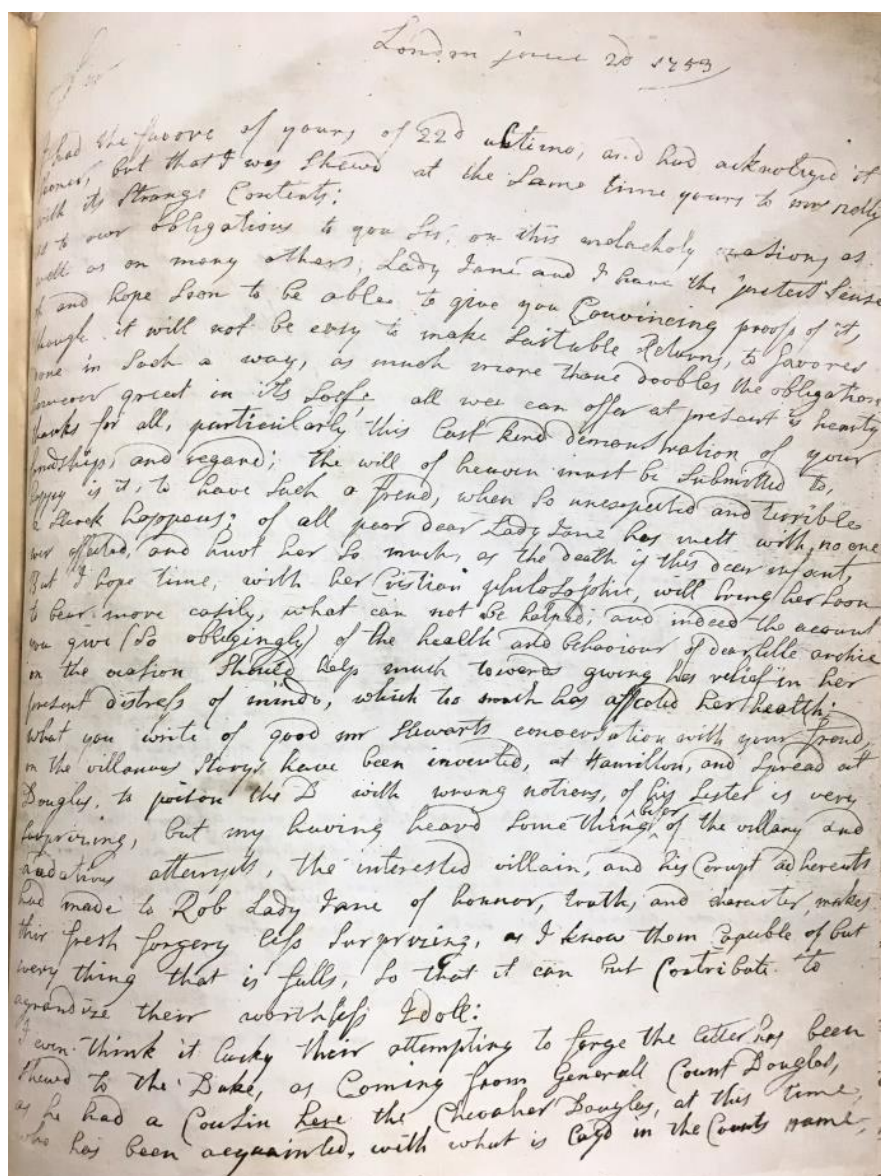 London june 2d 1753
Sir
I had the favore of yours of 22d ultimo, and had acknolegd it
sooner, but that I was shewd at the same time yours to mrs nelly
with its strange Contents:
as to our obligations to you Sir, on this melacholy ocasion, as
well as on many others, Lady Jane and I have the justest sense
of and hope soon to be able to give you Convincing proofs of it,
though it will not be easy to make suitable Returns, to favores
done in such a way, as much more thane doobles the obligation
however great in its self; all wee can offer at present is hearty
thanks for all, particularly this last kind demonstration of your
frindship, and regard; the will of heaven must be submitted to,
happy is it, to have such a frend, when so unexpected and terrible
a strock happens; of all poor dear Lady Jane has mett with, no one
ever affected, and hurt her so much, as the death of this dear infant,
But I hope time, with her Cristian philosophie, will bring her soon
to bear more easily, what can not be helped; and indeed the acount
you give (so obligingly) of the health and behaviour of dear little archie
on the ocation should help much towards giving her relief in her
present distress of minde, which too much has affected her health:
what you write of good mr Stewarts conversation with your frend,
on the villanous storys have been invented, at Hamilton, and spread at
Douglas, to poison the D with wrong notions, of his sister is very
surprizing, but my having heard some thing befor of the villany and
audatious attempts, the interested villain, and his Corupt adherents
had made to Rob Lady Jane of honnor, truth, and character, makes
this fresh forgery less surprizing, as I know them Capable of but
every thing that is falls, so that it can but Contribute to
agrandize their worthless Idoll:
I even think it lucky their attempting to forge the letter has been
shewed to the Duke, as Coming from Generall Count Douglas,
as he had a Cousin here the Chevalier Douglas, at this time,
who has been acquainted, with what is layd in the Counts name,